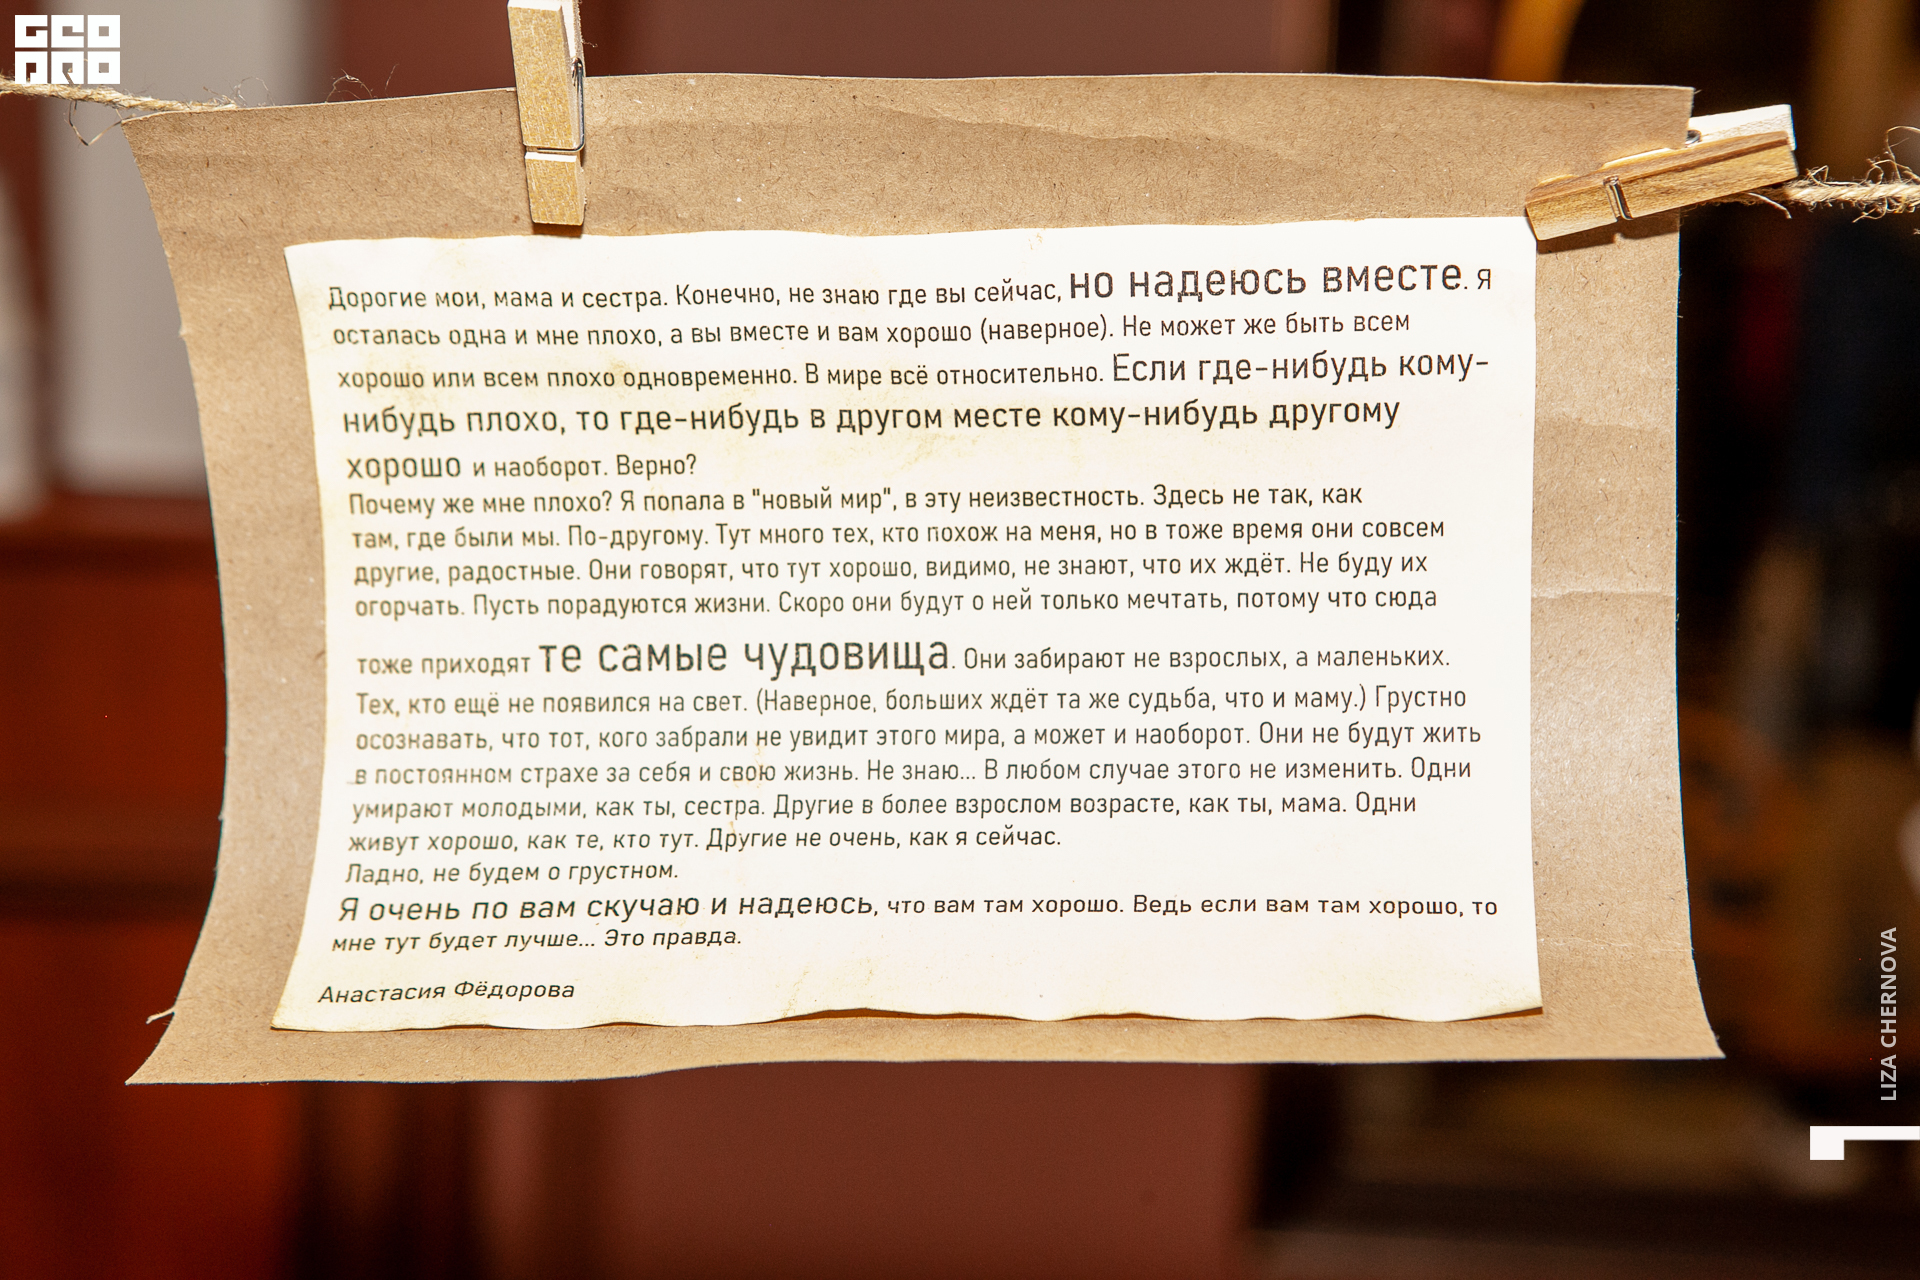 GEO
PRO
Дорогие мои, мама и сестра. Конечно, не знаю где вы сейчас, но надеюсь вместе. Я
осталась одна и мне плохо, а вы вместе и вам хорошо (наверное). Не может же быть всем
хорошо или всем плохо одновременно. В мире всё относительно. Если где-нибудь кому-
нибудь плохо, то где-нибудь в другом месте кому-нибудь другому
хорошо и наоборот. Верно?
Почему же мне плохо? Я попала в "новый мир", в эту неизвестность. Здесь не так, как
там, где были мы. По-другому. Тут много тех, кто похож на меня, но в тоже время они совсем
другие, радостные. Они говорят, что тут хорошо, видимо, не знают, что их ждёт. Не буду их
огорчать. Пусть порадуются жизни. Скоро они будут о ней только мечтать, потому что сюда
тоже приходят те самые чудовища. Они забирают не взрослых, а маленьких.
Тех, кто ещё не появился на свет. (Наверное, больших ждёт та же судьба, что и маму.) Грустно
осознавать, что тот, кого забрали не увидит этого мира, а может и наоборот. Они не будут жить
в постоянном страхе за себя и свою жизнь. Не знаю... В любом случае этого не изменить. Одни
умирают молодыми, как ты, сестра. Другие в более взрослом возрасте, как ты, мама. Одни
живут хорошо, как те, кто тут. Другие не очень, как я сейчас.
Ладно, не будем о грустном.
Я очень по вам скучаю и надеюсь, что вам там хорошо. Ведь если вам там хорошо, то
мне тут будет лучше... Это правда.
Анастасия Фёдорова
LIZA CHERNOVA